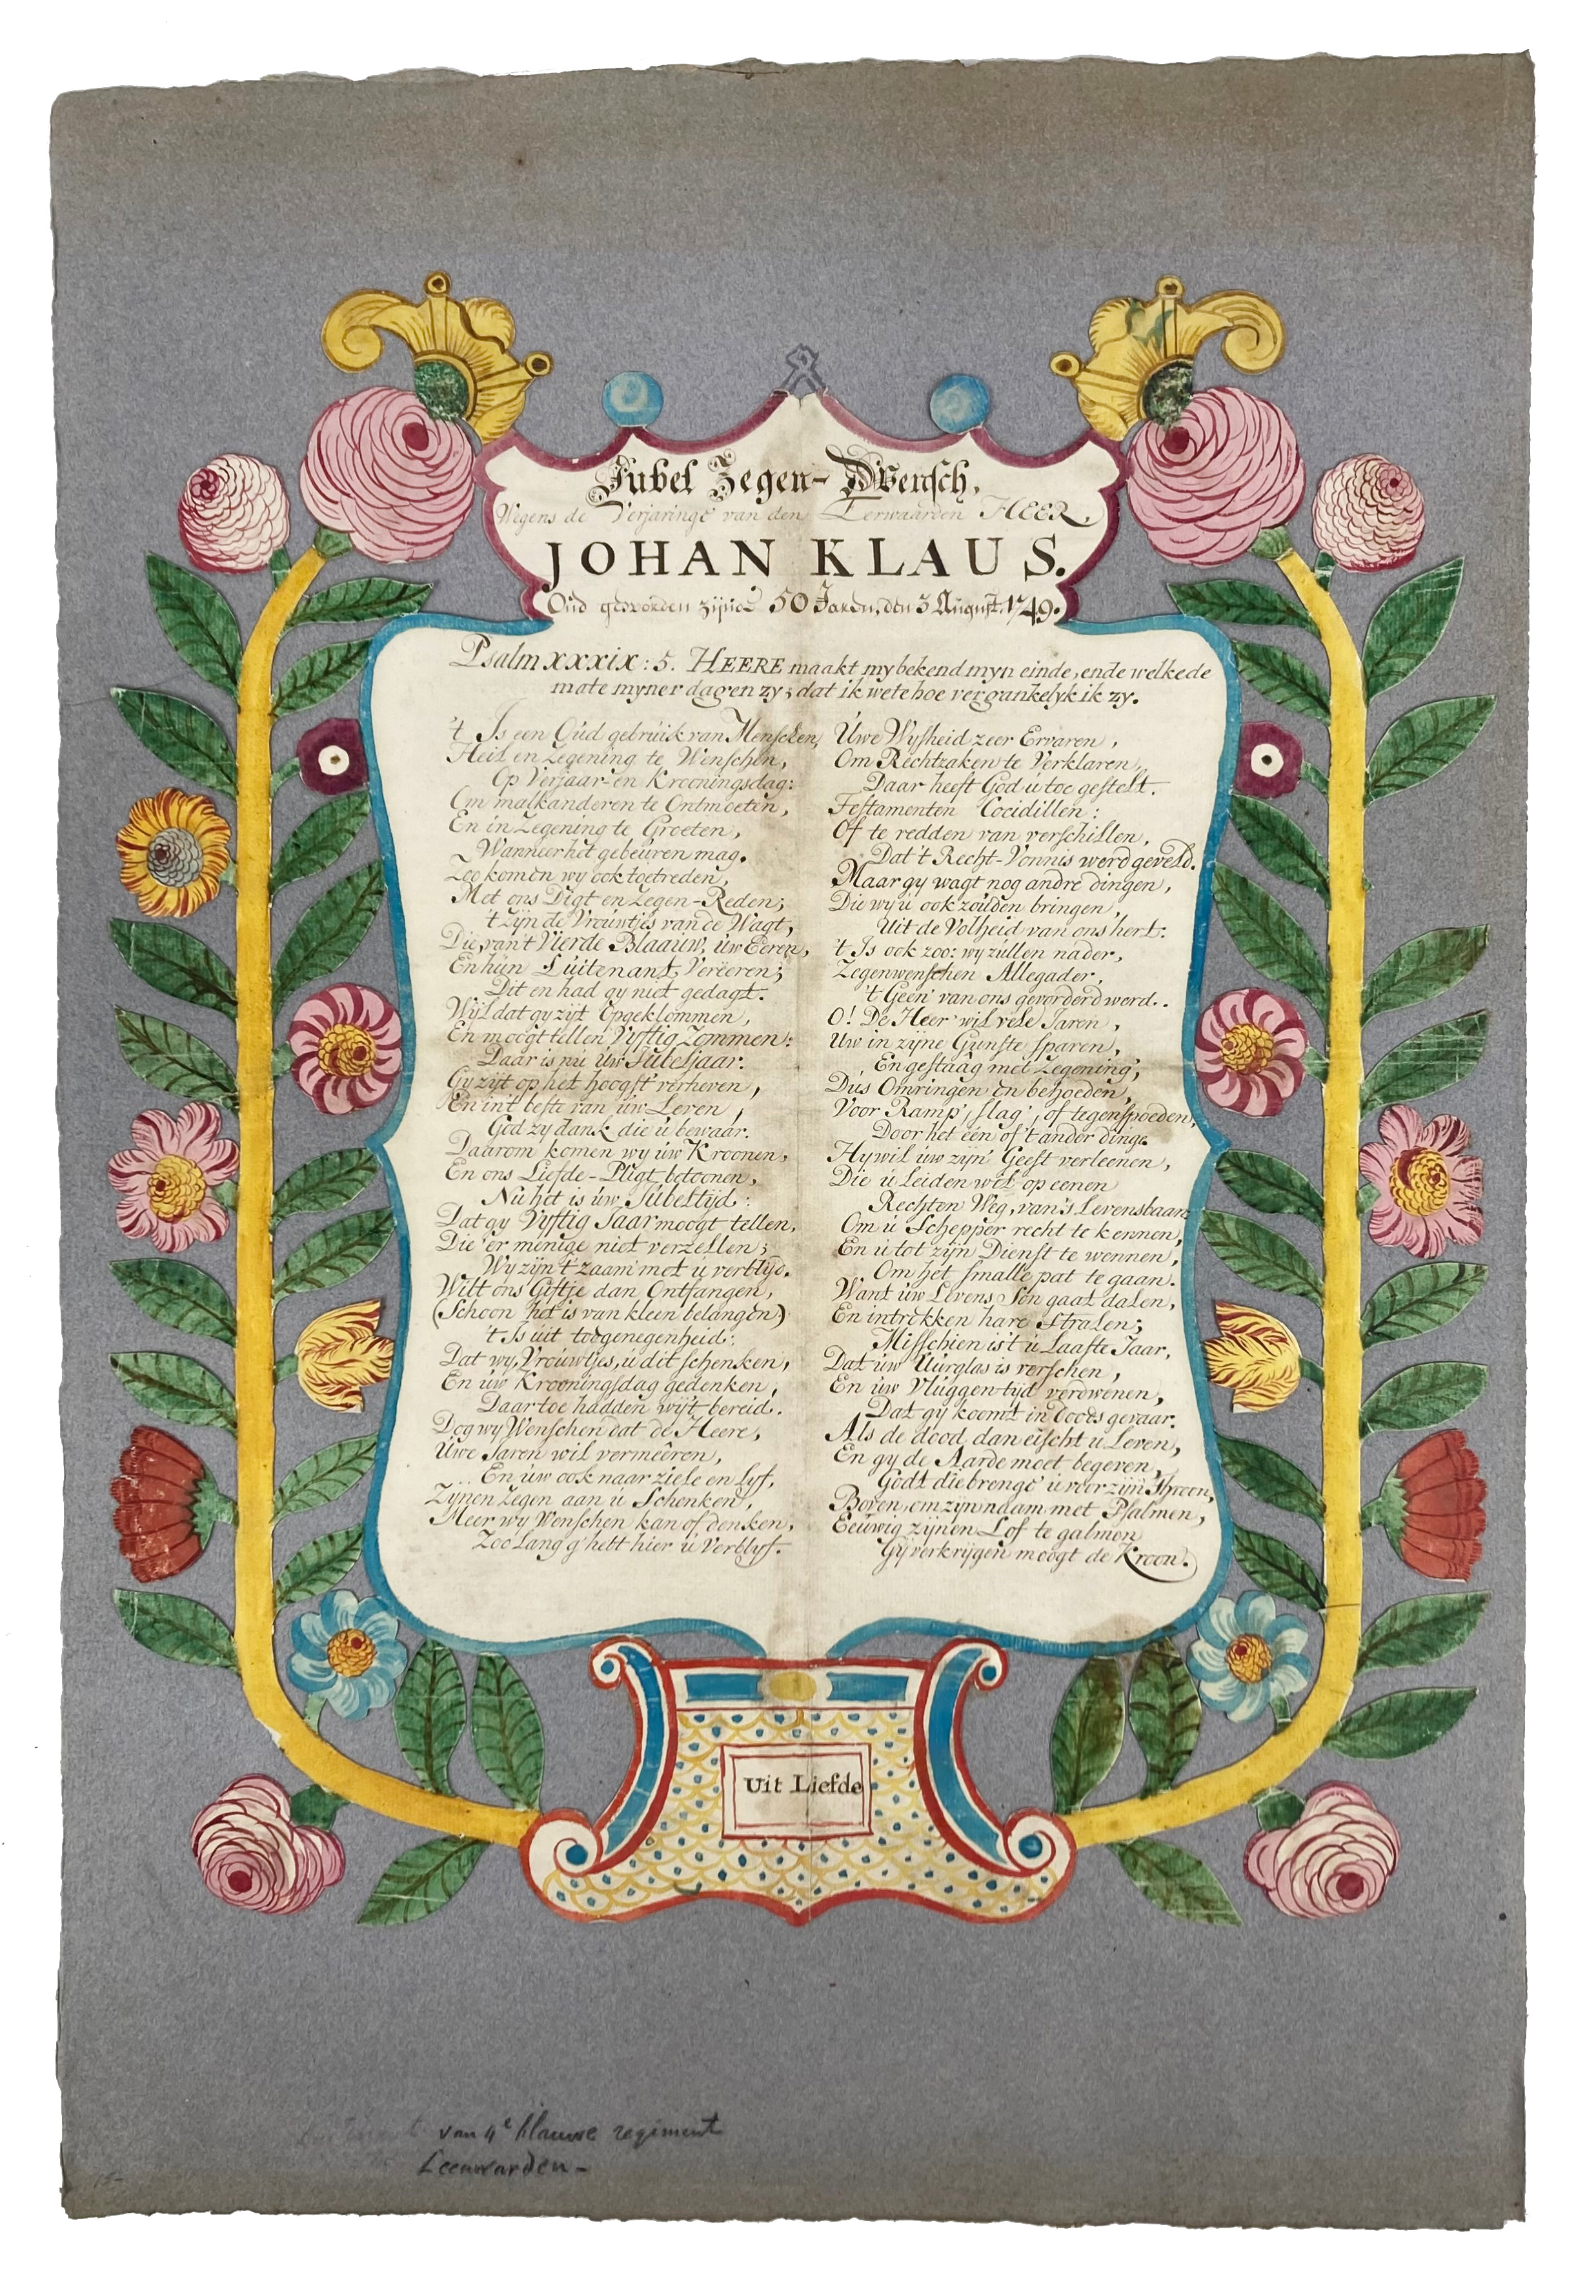 Jubel Zegen-Wensch,
Wegens de Verjaringe van den Eerwaarden HEER,
JOHAN KLAUS.
Oud geworden zijnde 50 Jaren, den 3 August. 1749.
Psalm XXXIX: 5. HEERE maakt my bekend myn einde, ende welke de
mate myner dagen zy; dat ik wete hoe vergankelyk ik zy.
't Is een Oud gebruik van Menschen,
Heil en Zegening te Wenschen,
Op Verjaar- en Krooningsdag:
Om malkanderen te Ontmoeten,
En in Zegening te Groeten,
Wanneer het gebeuren mag.
Zoo komen wy ook toetreden,
Met ons Digt en Zegen-Reden;
't zijn de Vrouwtjes van de Wagt,
Die, van't Vierde Blaauw, uw Eeren,
En hun Luitenant, Vereeren;
Dit en had gy niet gedagt.
Wijl dat gy zyt Opgeklommen,
En moogt tellen Vyftig Zommen:
Daar is nu Uw Jubeljaar.
Gy zyt op het hoogst verheven,
En in't beste van uw Leven,
God zy dank die u bewaar.
Daarom komen wy uw Kroonen,
En ons Liefde-Pligt betoonen,
Nu het is uw Jubeltyd:
Dat gy Vyftig Jaar moogt tellen,
Die 'er menige niet verzellen;
Wy zijn't zaam met u verblyd.
Wilt ons Giftje dan Ontfangen,
(Schoon het is van kleen belangen)
't Is uit toegenegenheid:
Dat wy, Vrouwtjes, u dit schenken,
En uw Krooningsdag gedenken,
Daar toe hadden wy't bereid.
Dog wy Wenschen dat de Heere,
Uwe Jaren wil vermeêren,
En uw ook naar ziele en lyf,
Zynen Zegen aan u Schenken,
Meer wy Wenschen kan of denken,
Zoo lang g'hebt hier u Verblyf.
Uwe Wysheid zeer Ervaren,
Om Rechtzaken te Verklaren,
Daar heeft God u toe gestelt.
Testamenten Cocidillen:
Of te redden van verschillen,
Dat 't Recht-Vonnis werd geveld.
Maar gy wagt nog andre dingen,
Die wy u ook zouden bringen,
Uit de Volheid van ons hert:
't Is ook zoo: wy zullen nader,
Zegenwenschen Allegader,
't Geen van ons gevorderd werd.
O! De Heer wil vele Jaren,
Uw in zyne Gunste sparen,
En gestaâg met Zegening;
Dus Omringen en behoeden,
Voor Ramp, slag, of tegenspoeden,
Door het één of 't ander ding.
Hy wil uw zyn Geest verleenen,
Die u Leiden wil op eenen
Rechten Weg, van 's Levensbaan
Om u Schepper recht te kennen,
En u tot zijn Dienst te wennen,
Om het smalle pat te gaan.
Want uw Levens Son gaat dalen,
En intrekken hare Stralen;
Misschien is't u Laaste Jaar,
Dat uw Uurglas is verschen,
En uw Vluggen-tyd verdwenen,
Dat gy koomt in Doods gevaar.
Als de dood dan eischt u Leven,
En gy de Aarde moet begeven,
Godt die brenge u voor zijn Throon,
Boven, om zyn naam met Psalmen,
Eeuwig zijnen Lof te galmen
Gy verkrijgen moogt de Kroon.
Uit Liefde
van 4e blauwe regiment
Leeuwarden -
15-